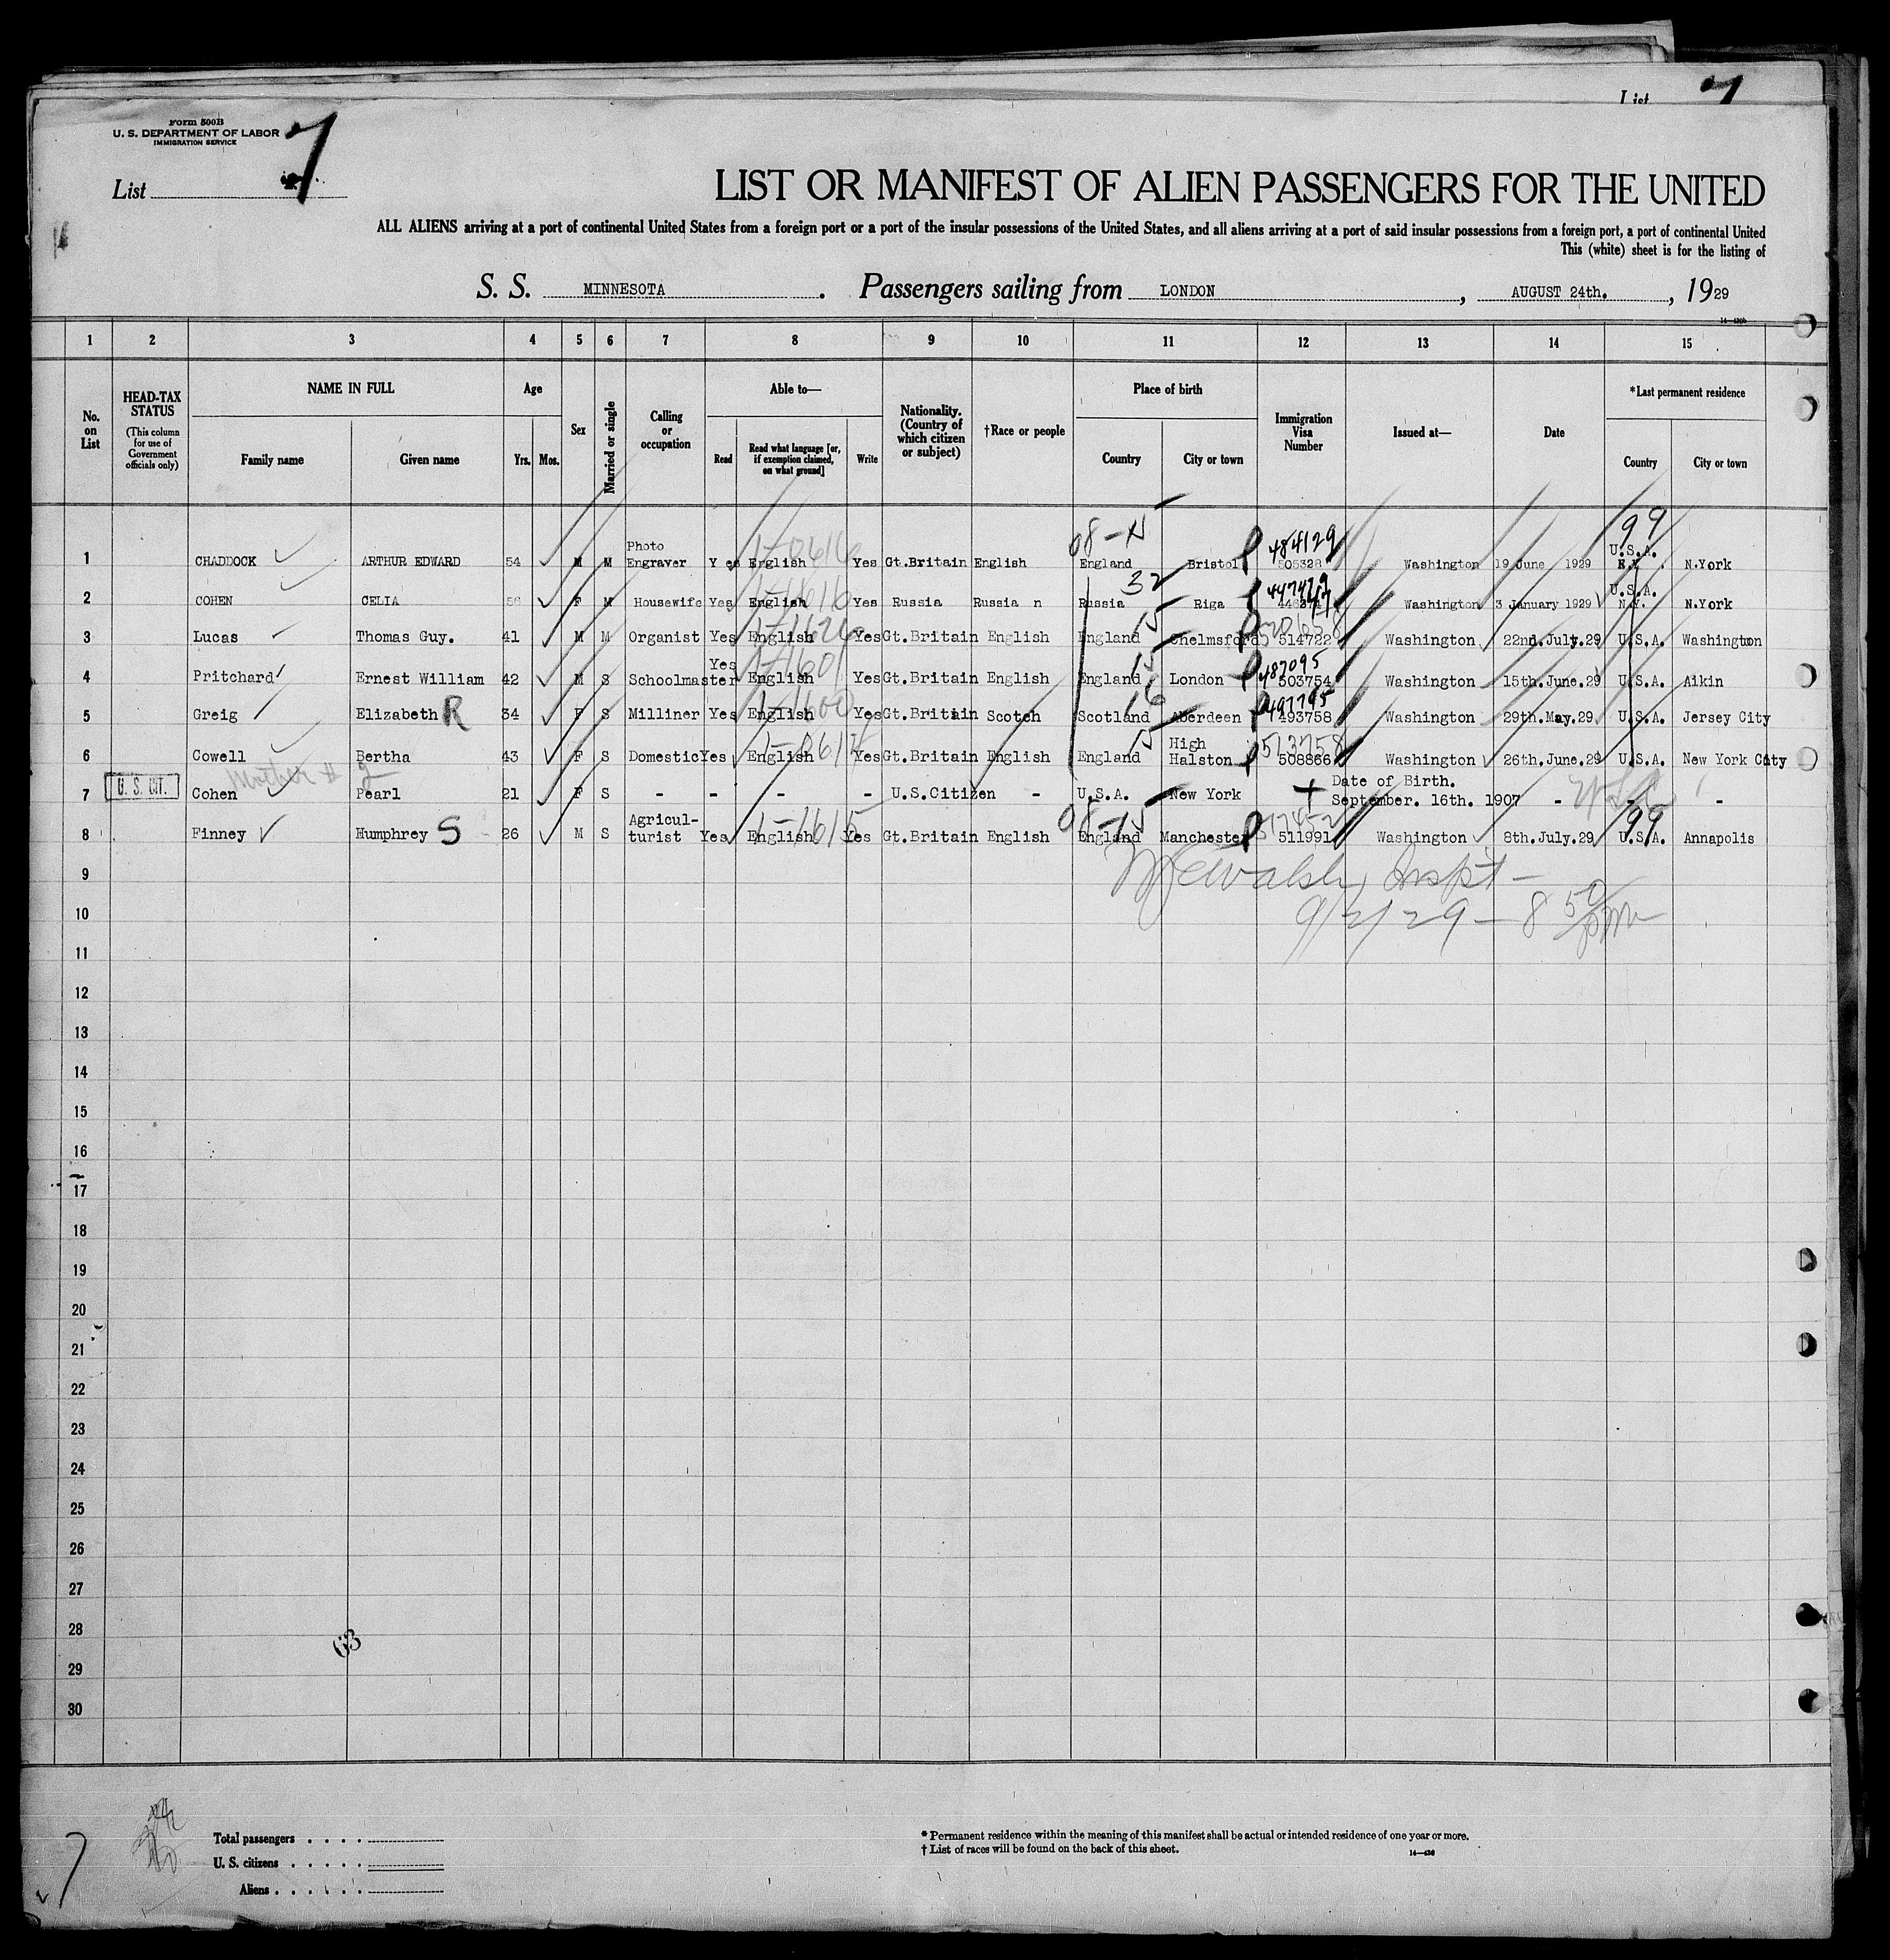 List 7
Form 500B
U. S. DEPARTMENT OF LABOR
IMMIGRATION SERVICE
List 7
LIST OR MANIFEST OF ALIEN PASSENGERS FOR THE UNITED
ALL ALIENS arriving at a port of continental United States from a foreign port or a port of the insular possessions of the United States, and all aliens arriving at a port of said insular possessions from a foreign port, a port of continental United
This (white) sheet is for the listing of
S. S. MINNESOTA. Passengers sailing from LONDON, AUGUST 24th., 1929
1 2 3 4 5 6 7 8 9 10 11 12 13 14 15
No. on List
HEAD-TAX STATUS (This column for use of Government officials only)
NAME IN FULL
Family name
Given name
Age
Yrs. Mos.
Sex
Married or single
Calling or occupation
Able to—
Read
Read what language [or, if exemption claimed, on what ground]
Write
Nationality. (Country of which citizen or subject)
†Race or people
Place of birth
Country
City or town
Immigration Visa Number
Issued at—
Date
*Last permanent residence
Country
City or town
08-15 484129 99
1 CHADDOCK ARTHUR EDWARD 54 M M Photo Engraver Yes English Yes Gt.Britain English England Bristol 505328 Washington 19 June 1929 U.S.A. N.Y. N.York
32
2 COHEN CELIA 56 F M Housewife Yes English Yes Russia Russia n Russia Riga Washington 3 January 1929 U.S.A. N.Y. N.York
15 520658
3 Lucas Thomas Guy. 41 M M Organist Yes English Yes Gt.Britain English England Chelmsford 514722 Washington 22nd.July.29 U.S.A. Washington
15 487095
4 Pritchard Ernest William 42 M S Schoolmaster Yes English Yes Gt.Britain English England London 503754 Washington 15th.June.29 U.S.A. Aikin
16 497795
5 Greig Elizabeth R 34 F S Milliner Yes English Yes Gt.Britain Scotch Scotland Aberdeen 493758 Washington 29th.May.29 U.S.A. Jersey City
15 513758
6 Cowell Bertha 43 F S Domestic Yes English Yes Gt.Britain English England High Halston 508866 Washington 26th.June.29 U.S.A. New York City
Mother # 2
7 U. S. CIT. Cohen Pearl 21 F S - - - - U.S.Citizen - U.S.A. New York Date of Birth. September. 16th. 1907 - - -
08-15 99
8 Finney Humphrey S 26 M S Agricul-turist Yes English Yes Gt.Britain English England Manchester 511991 Washington 8th.July.29 U.S.A. Annapolis
9
Walsh Inspt-
10
9/2/29 - 8 50 pm
11
12
13
14
15
16
17
18
19
20
21
22
23
24
25
26
27
28
63
29
30
Total passengers . . . .
U. S. citizens . . . . .
Aliens . . . . . .
7
* Permanent residence within the meaning of this manifest shall be actual or intended residence of one year or more.
† List of races will be found on the back of this sheet.